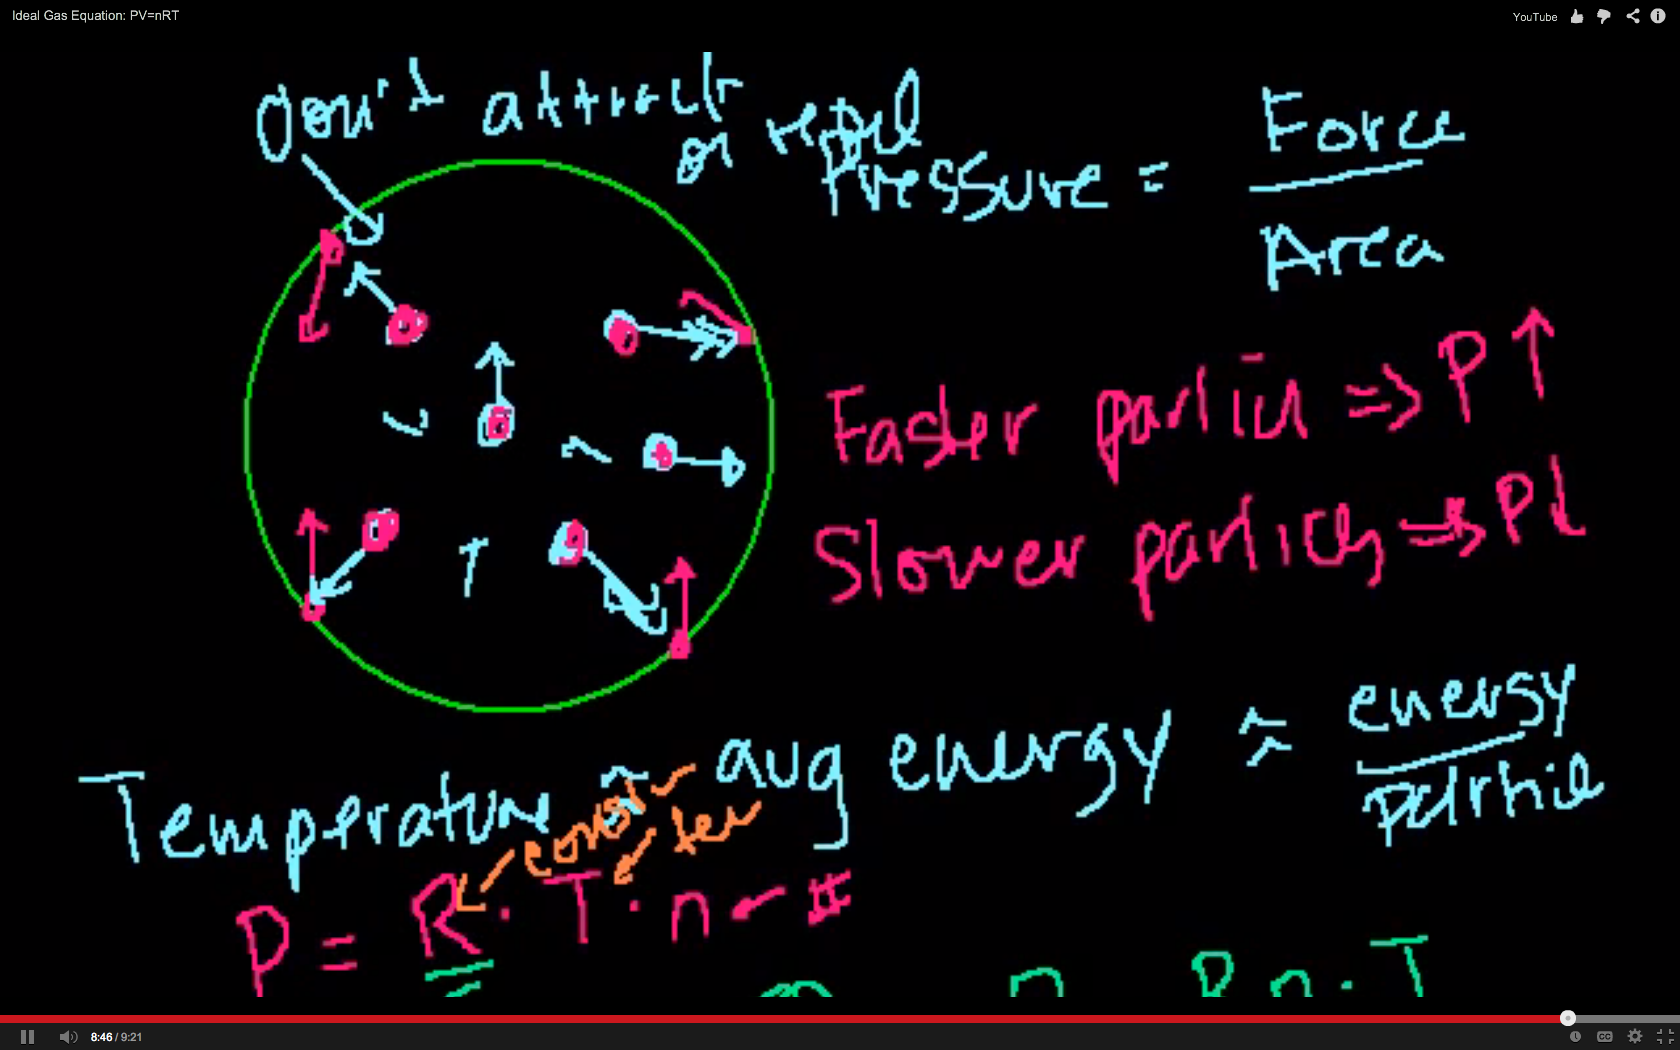 Ideal Gas Equation: PV=nRT
YouTube
don't attract
or repel
Pressure = Force
Area
Faster particl => P ↑
Slower particles => P↓
Temperature ≈ avg energy ≈ energy
particle
const
P = R · T · n ← #
P n · T
8:46 / 9:21
CC